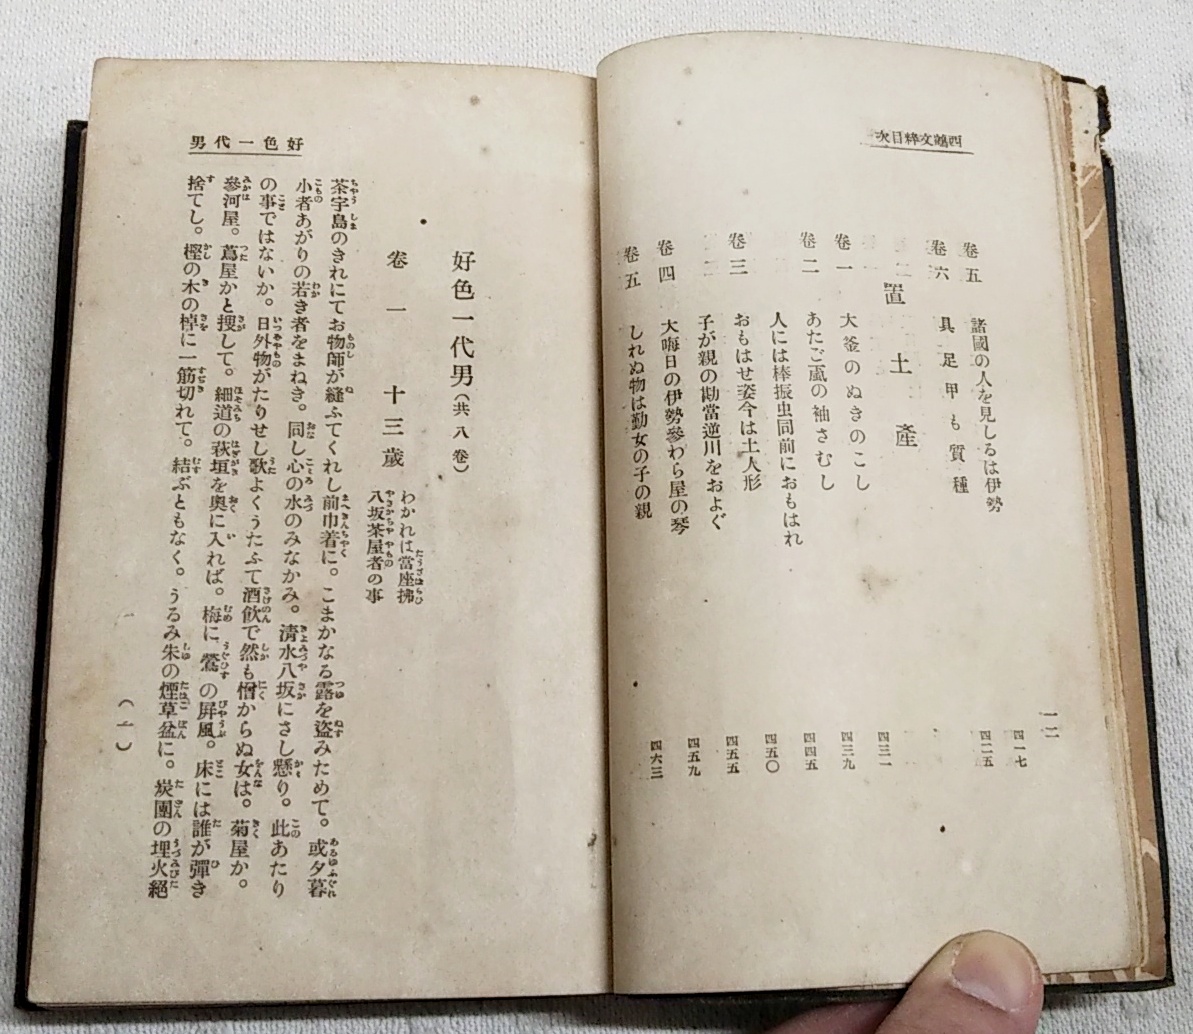 西鶴文粹目次
一二
卷五 諸國の人を見しるは伊勢 四一七
卷六 具足甲も質種 四二五
置土產
卷一 大釜のぬきのこし 四三一
あたご颪の袖さむし 四三九
卷二 人には棒振虫同前におもはれ 四四五
卷三 おもはせ姿今は土人形 四五〇
子が親の勘當逆川をおよぐ 四五五
卷四 大晦日の伊勢參わら屋の琴 四五九
卷五 しれぬ物は勤女の子の親 四六三
好色一代男
好色一代男(共八卷)
卷一 十三歲
わかれは當座拂
八坂茶屋者の事
茶宇島のきれにてお物師が縫ふてくれし前巾着に。こまかなる露を盜みためて。或夕暮
小者あがりの若き者をまねき。同し心の水のみなかみ。淸水八坂にさし懸り。此あたり
の事ではないか。日外物がたりせし歌よくうたふて酒飮で然も憎からぬ女は。菊屋か。
參河屋。蔦屋かと搜して。細道の萩垣を奧に入れば。梅に鶯の屛風。床には誰が彈き
捨てし。樫の木の棹に一筋切れて。結ぶともなく。うるみ朱の煙草盆に。炭團の埋火絕
(一)